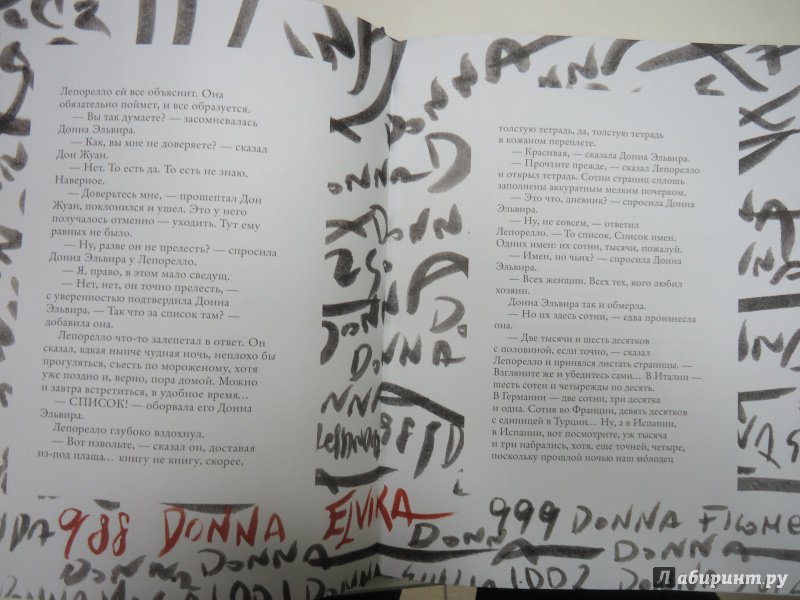 Лепорелло ей все объяснит. Она
обязательно поймет, и все образуется.
— Вы так думаете? — засомневалась
Донна Эльвира.
— Как, вы мне не доверяете? — сказал
Дон Жуан.
— Нет. То есть да. То есть не знаю.
Наверное.
— Доверьтесь мне, — прошептал Дон
Жуан, поклонился и ушел. Это у него
получалось отменно — уходить. Тут ему
равных не было.
— Ну, разве он не прелесть? — спросила
Донна Эльвира у Лепорелло.
— Я, право, в этом мало сведущ.
— Нет, нет, он точно прелесть, —
с уверенностью подтвердила Донна
Эльвира. — Так что за список там? —
добавила она.
Лепорелло что-то залепетал в ответ. Он
сказал, какая нынче чудная ночь, неплохо бы
прогуляться, съесть по мороженому, хотя
уже поздно и, верно, пора домой. Можно
и завтра встретиться, в удобное время…
— СПИСОК! — оборвала его Донна
Эльвира.
Лепорелло глубоко вздохнул.
— Вот извольте, — сказал он, доставая
из-под плаща… книгу не книгу, скорее,
толстую тетрадь, да, толстую тетрадь
в кожаном переплете.
— Красивая, — сказала Донна Эльвира.
— Прочтите прежде, — сказал Лепорелло
и открыл тетрадь. Сотни страниц сплошь
заполнены аккуратным мелким почерком.
— Это что, дневник? — спросила Донна
Эльвира.
— Ну, не совсем, — ответил
Лепорелло. — То список. Список имен.
Одних имен: их сотни, тысячи, пожалуй.
— Имен, но чьих? — спросила Донна
Эльвира.
— Всех женщин. Всех тех, кого любил
хозяин.
Донна Эльвира так и обмерла.
— Но их здесь сотни, — едва произнесла
она.
— Две тысячи и шесть десятков
с половиной, если точно, — сказал
Лепорелло и принялся листать страницы. —
Взгляните же и убедитесь сами… В Италии —
шесть сотен и четырежды по десять.
В Германии — две сотни, три десятка
и одна. Сотня во Франции, девять десятков
с единицей в Турции… Ну, а в Испании,
в Испании, вот посмотрите, уж тысяча
и три набрались, хотя, еще точней, четыре,
поскольку прошлой ночью наш молодец
DONNA
DONNA
DONNA
DONNA
988 DONNA ELVIRA
999 DONNA FILOME
DONNA
DONNA
DONNA
DONNA
1001 DONNA
1002 DONNA
Лабиринт.ру